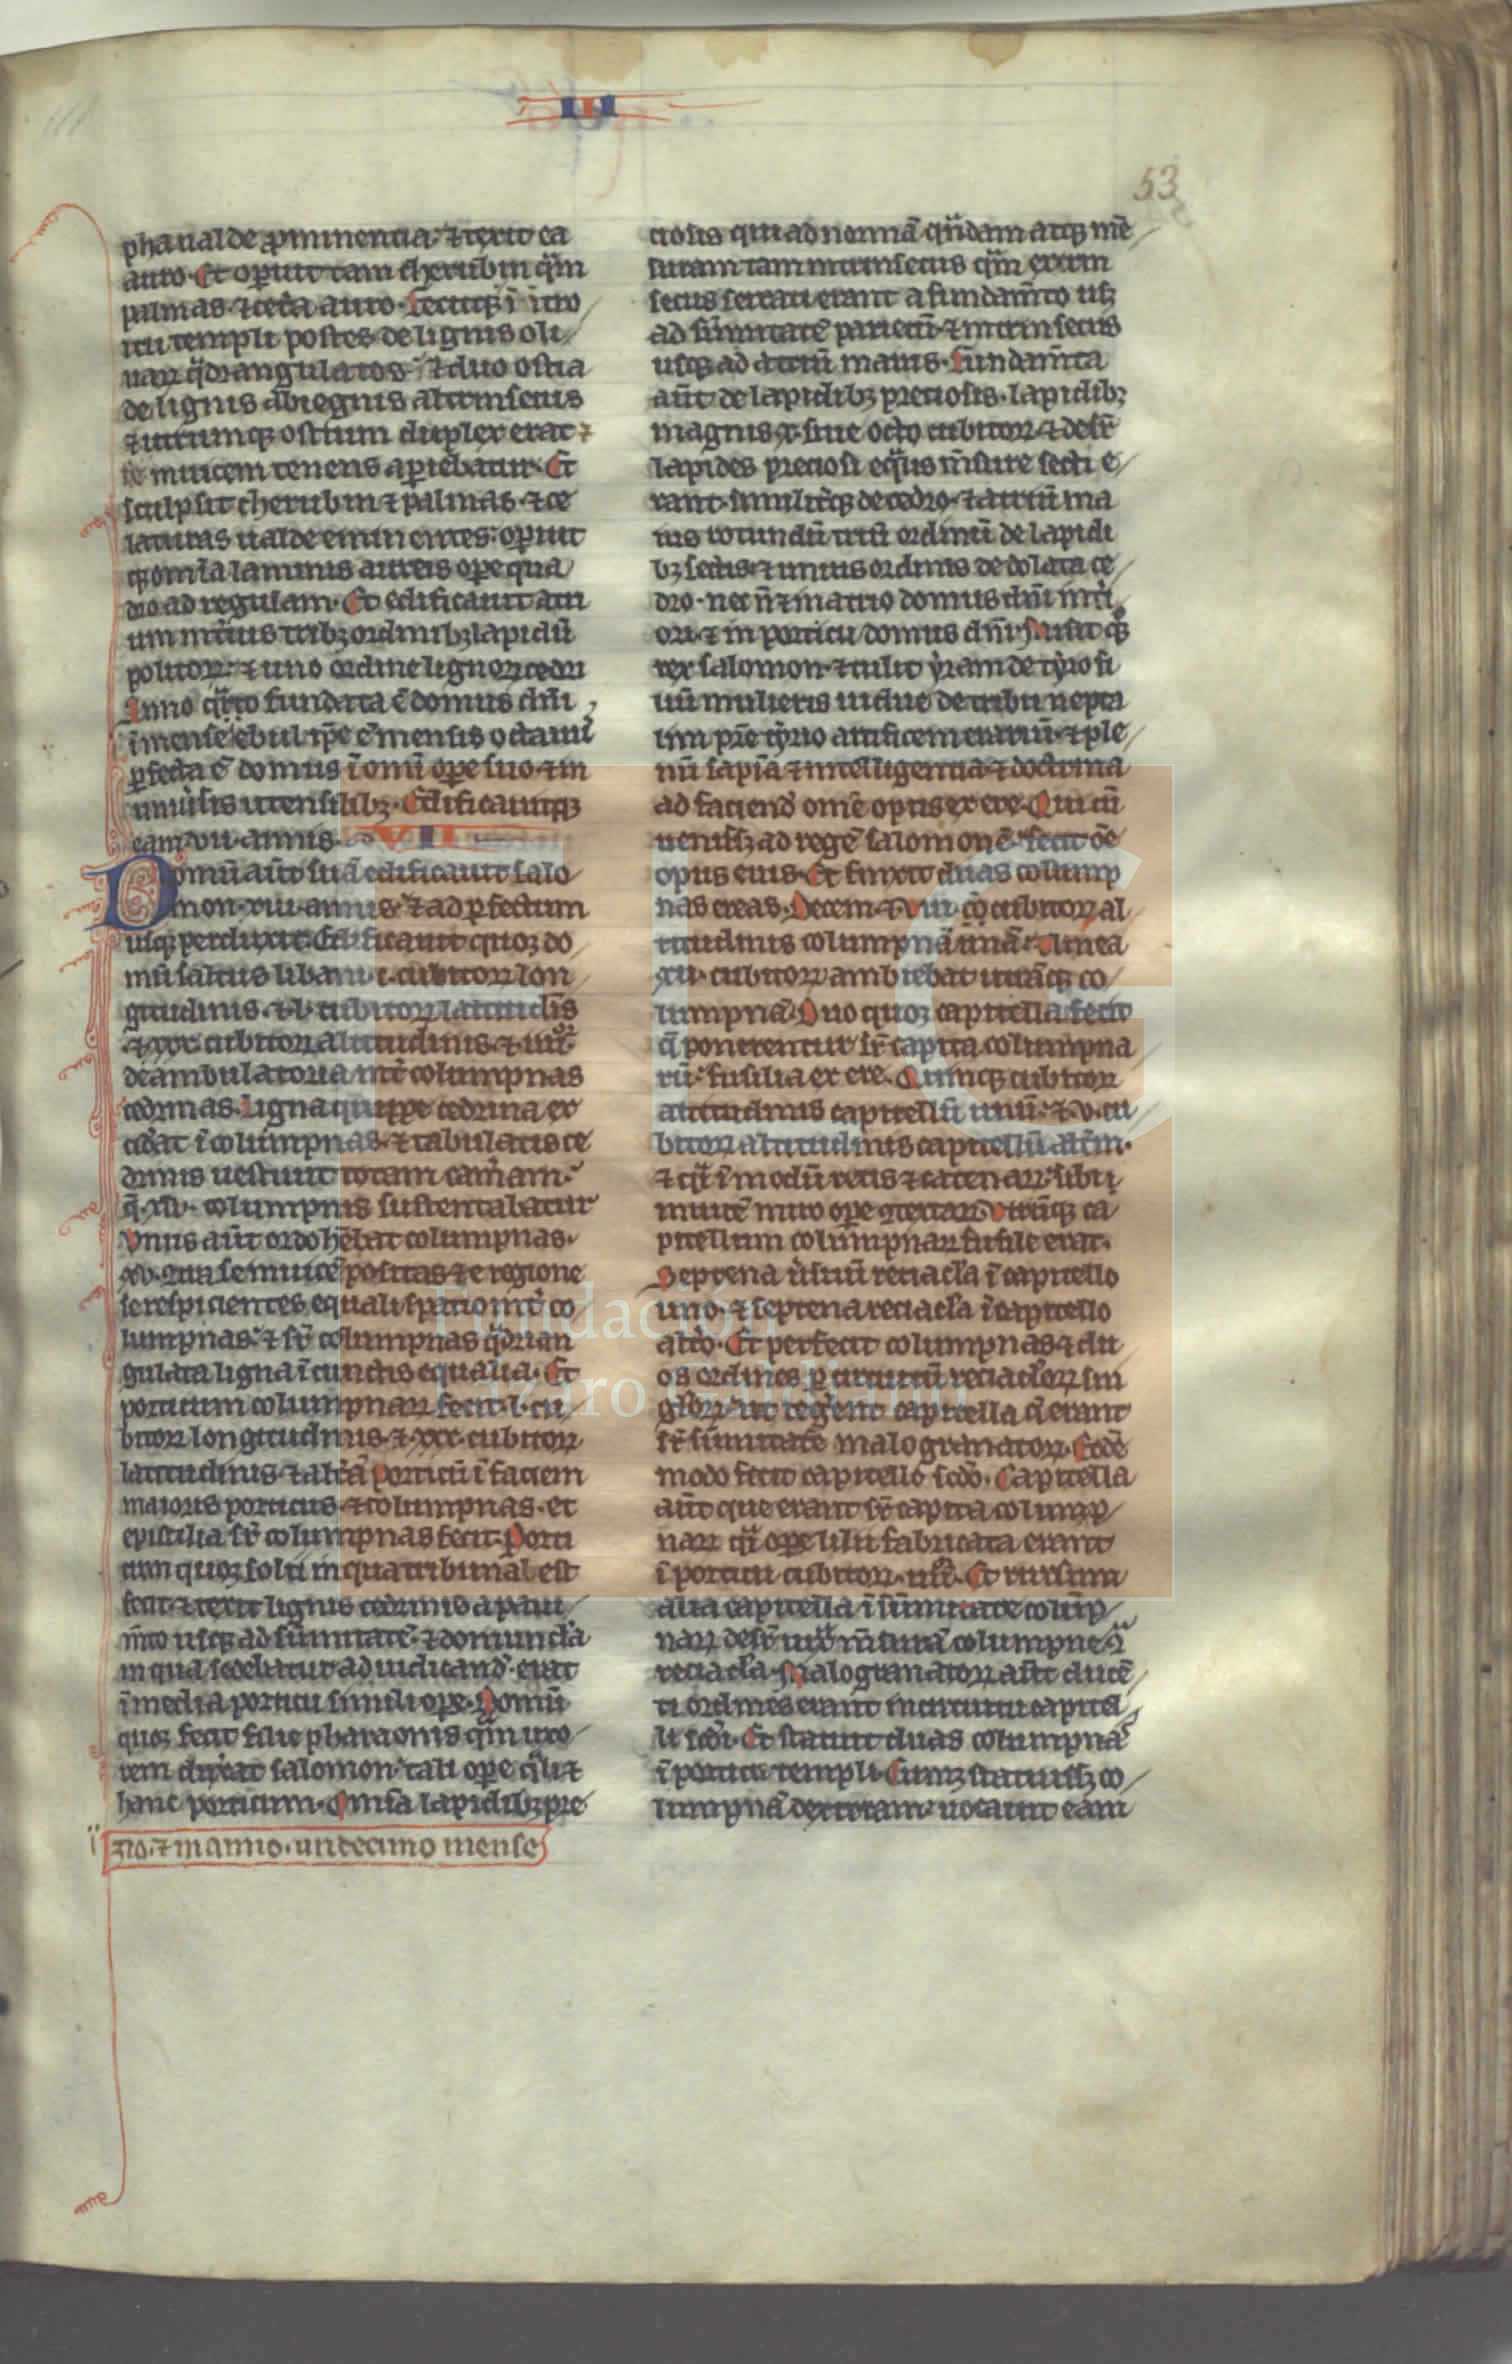 III
53
pha ualde p̄minentia. ⁊ texit ea
auro. Et operuit tam cherubin q̈m
palmas. ⁊ cet̄a auro. fecitqꝫ ī itro
itu templi postes de lignis oli
uaꝝ q̈drangulatos. ⁊ duo ostia
de lignis abiegnis altrinsecus
⁊ utrumqꝫ ostium duplex erat ⁊
se inuicem tenens aperiebatur. Et
sculpsit cherubin ⁊ palmas. ⁊ ce
laturas ualde eminentes. operuit
qꝫ om̄ia laminis aureis opere qua
dro ad regulam. Et edificauit atri
um int̄ius tribꝫ ordinibꝫ lapidū
politoꝝ. ⁊ uno ordine lignoꝝ cedri
Anno q̈rto fundata ē domus dn̄i
ī mense ebul ip̄e ē mensis octauus
p̄fecta ē domus ī om̄i opere suo. ⁊ in
uniūsis utensilibꝫ. Edificauitqꝫ
eam. vii. annis. VII
Domū aūt suā edificauit salo
mon. xiii. annis. ⁊ ad p̄fectum
usqꝫ perduxit. Edificauit quoqꝫ do
mū saltus libani. c. cubitoꝝ lon
gitudinis. ⁊ l. cubitoꝝ latitudīs
⁊ xxx. cubitoꝝ altitudinis. ⁊ iiiior
deambulatoria int̄ columpnas
cedrinas. Ligna quippe cedrina ex
cid̄at ī columpnas. ⁊ tabulatis ce
drinis uestiuit totam cam̄am.
q̄. xlv. columpnis sustentabatur
Vnus aūt ordo hēbat columpnas.
xv. contra se inuicē positas ⁊ e regione
se respicientes equali spatio int̄ co
lumpnas. ⁊ sr̄ columpnas q̈dran
gulata ligna ī cunctis equalia. Et
porticum columpnaꝝ fecit. l. cu
bitoꝝ longitudinis. ⁊ xxx. cubitoꝝ
latitudinis. ⁊ altā porticū ī faciem
maioris porticus. ⁊ columpnas. et
epistilia sr̄ columpnas fecit. Porti
cum quoqꝫ solii in qua tribunal est
fecit. ⁊ texit lignis cedrinis a paui
m̄to usqꝫ ad sūmitatē. ⁊ domuncl̄a
in qua sedebatur ad iudicand̄. erat
ī media porticu simili opere. Domū
quoqꝫ fecit filie pharaonis q̈m uxo
rem dux̄at salomon tali opere q̈li ⁊
hanc porticum. Omīa lapidibꝫ pre
zio. ⁊ in anno. undecimo mense
ciosis qui ad normā q̈ndam atqꝫ mē
suram tam intrinsecus q̈m extrin
secus serrati erant a fundam̄to usqꝫ
ad sūmitatē parietū. ⁊ intrinsecus
usqꝫ ad atriū maius. Fundam̄ta
aūt de lapidibꝫ preciosis. lapidibꝫ
magnis x. siue octo cubitoꝝ. ⁊ desr̄
lapides preciosi eq̈lis m̄sure secti e
rant. similit̄qꝫ de cedro. ⁊ atriū ma
ius rotundū triū ordinū de lapidi
bꝫ sectis. ⁊ unius ordinis de dolata ce
dro. nec n̄ ⁊ in atrio domus dn̄i int̄i
ori. ⁊ in porticu domus dn̄i. Misit qꝫ
rex salomon. ⁊ tulit yram de tyro fi
liū mulieris uidue de tribu nepta
lim pr̄e tyrio artificem erariū. ⁊ ple
nū sapīa ⁊ intelligentia ⁊ doctrina
ad faciend̄ om̄e opus ex ere. Qui cū
uenissꝫ ad regē salomonē. fecit ōe
opus eius. Et finxit duas colump
nas ereas. Decem ⁊ viii. cubitoꝝ al
titudinis columpnā unā. ⁊ linea
xii. cubitoꝝ ambiebat utrāqꝫ co
lumpnā. Duo quoqꝫ capitella fecit
q̄ ponerentur sr̄ capita columpna
rū. fusilia ex ere. Quinqꝫ cubitoꝝ
altitudinis capitellū unū. ⁊ v. cu
bitoꝝ altitudinis capitellū alt̄m.
⁊ q̈si ī modū retis ⁊ catenaꝝ. sibi
inuicē miro opere ꝯtextaꝝ. Vtrūqꝫ ca
pitellum columpnaꝝ fusile erat.
Septena ūsuū retiacl̄a ī capitello
uno. ⁊ septena retiacl̄a ī capitello
alt̄o. Et perfecit columpnas. ⁊ du
os ordines p̄ circuitū retiacl̄oꝝ sin
gl̄oꝝ. ut teḡent capitella q̄ erant
sr̄ sūmitatē malogranatoꝝ. Eodē
modo fecit capitello scd̄o. Capitella
aūt que erant sr̄ capita colump
naꝝ q̈si opere lilii fabricata erant
ī porticu cubitoꝝ. iiiior. Et rursum
alia capitella ī sūmitate colūp
naꝝ desr̄ iuxta m̄surā columpne ꝯtra
retiacl̄a. Malogranatoꝝ aūt ducē
ti ordines erant in circuitu capitel
li scd̄i. Et statuit duas columpnas
ī porticu templi. Cumqꝫ statuissꝫ co
lumpnā dexteram. uocauit eam
Fundación
Lázaro Galdiano